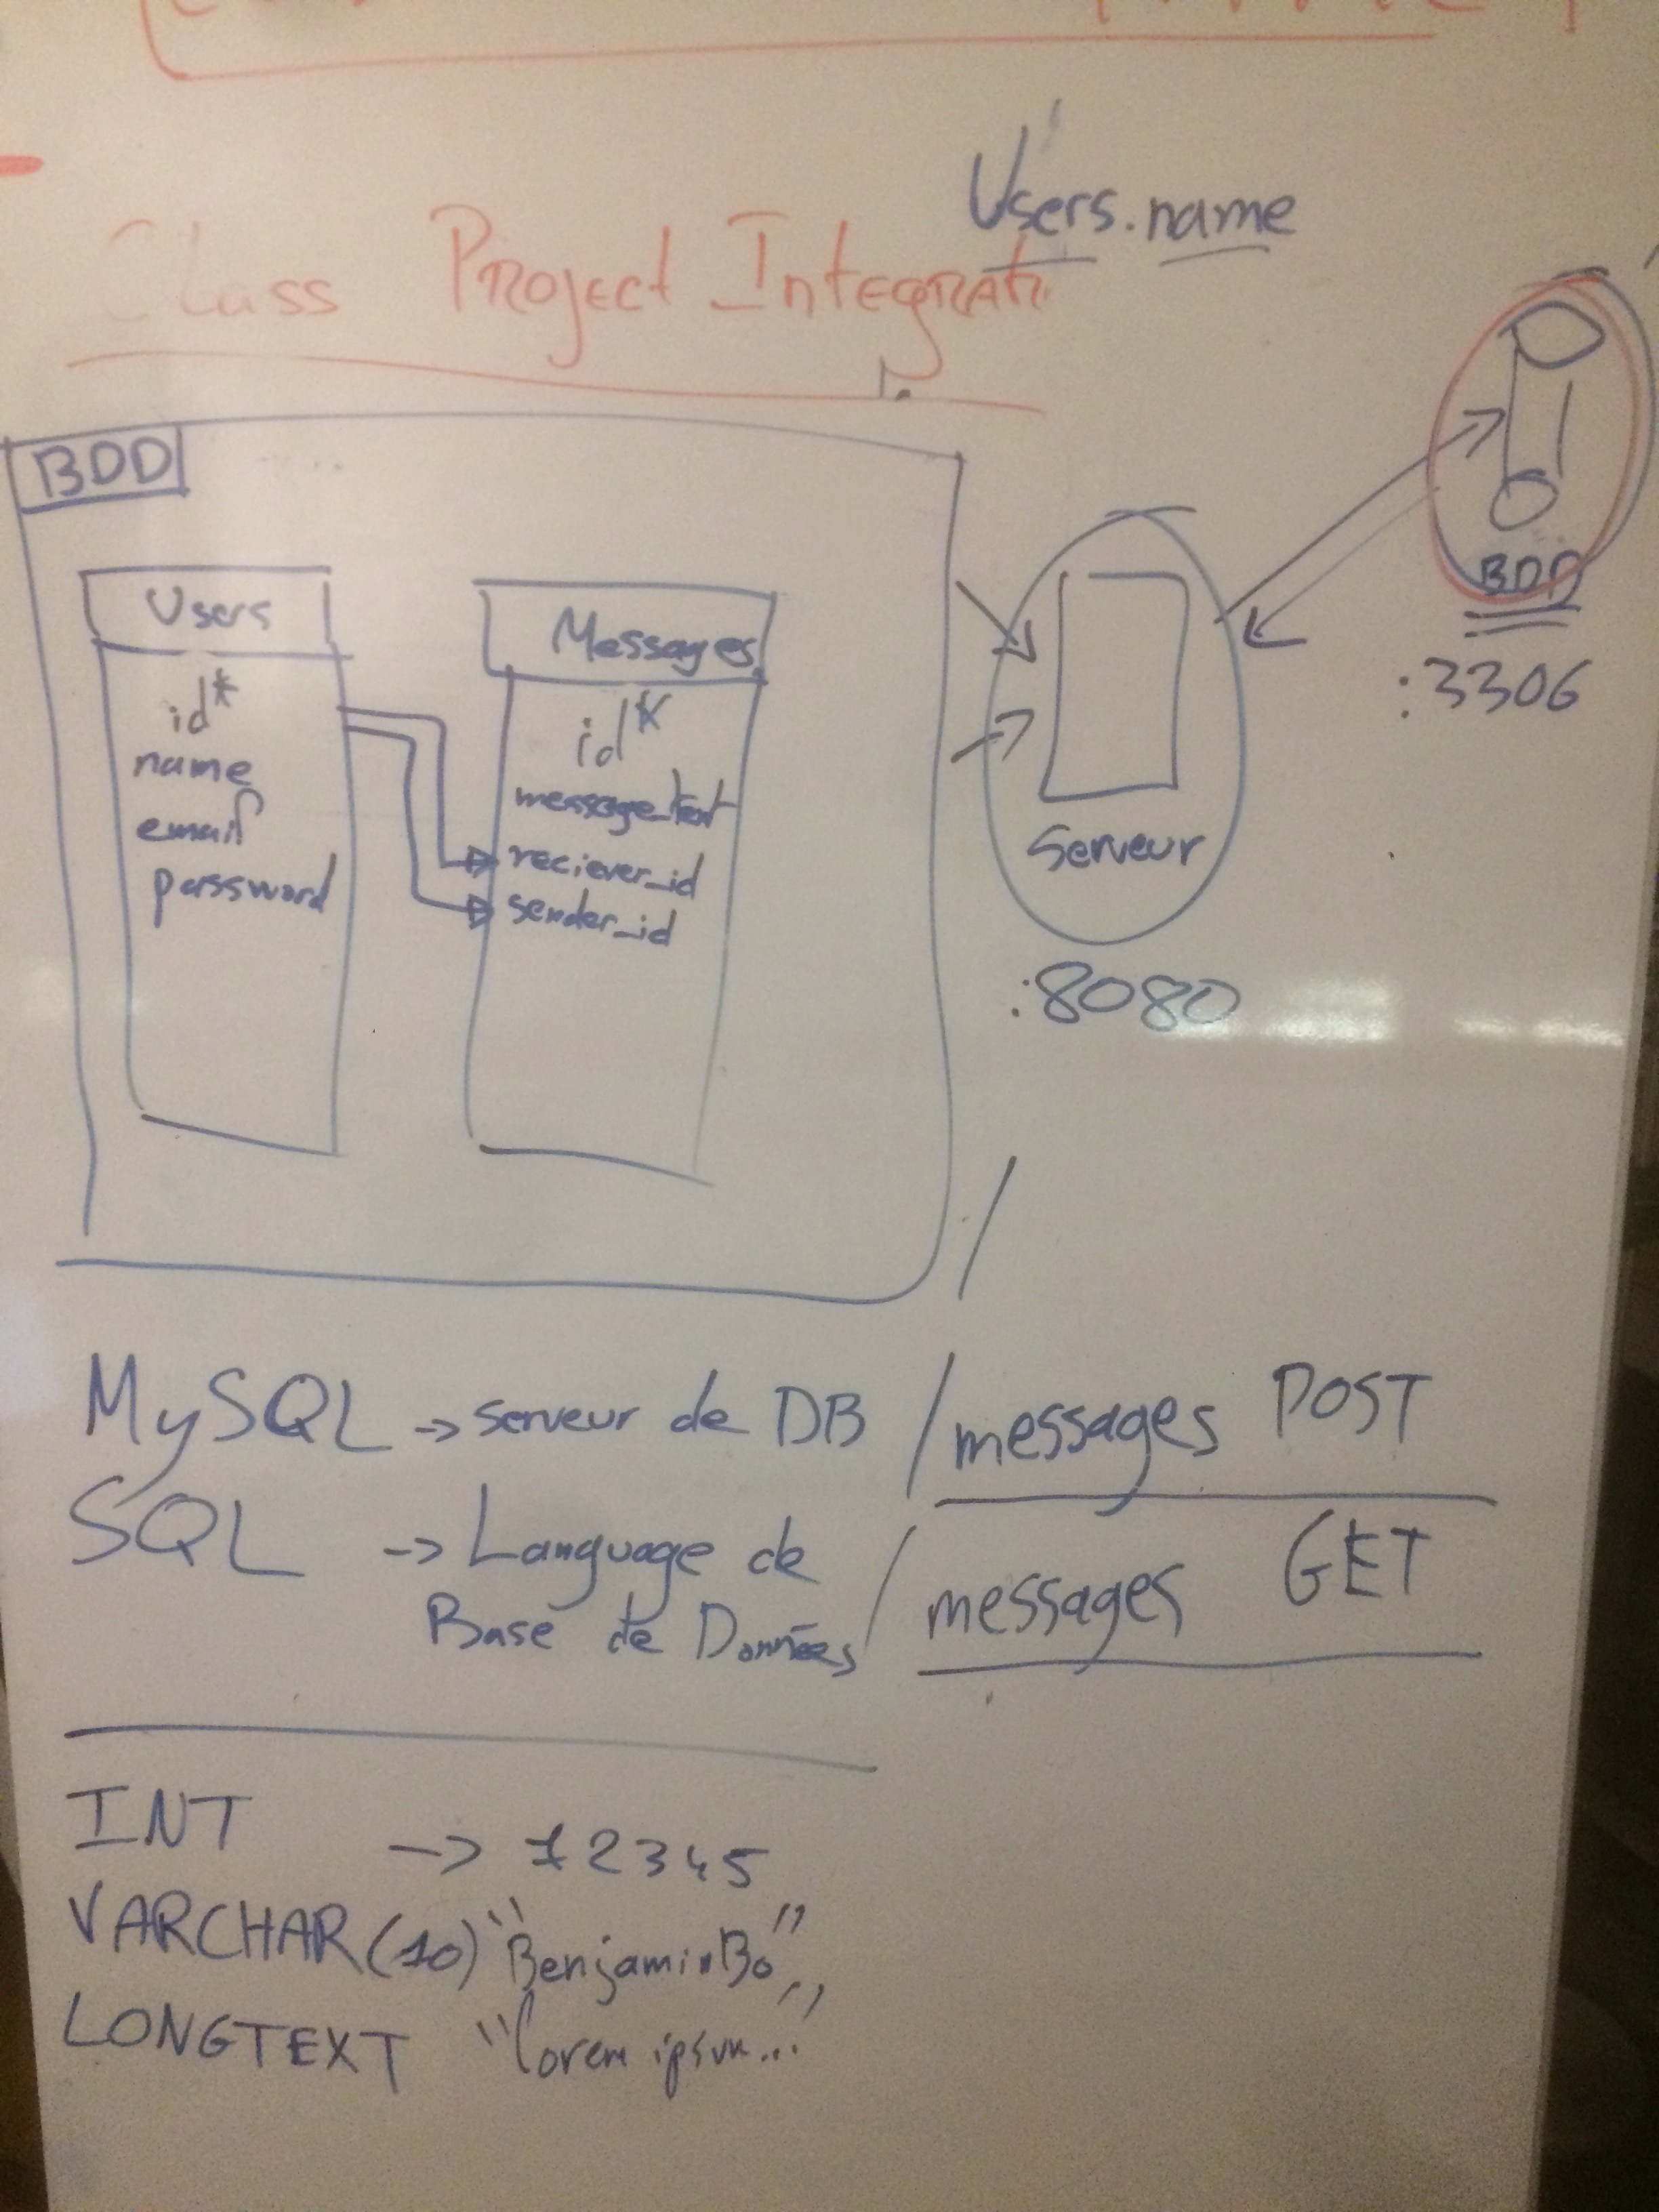 Users.name
Class Project Integrati
BDD
Users
id*
name
email
password
Messages
id*
message_text
reciever_id
sender_id
Serveur
:8080
BDD
:3306
MySQL -> serveur de DB
SQL -> Language de
Base de Données
/
/messages POST
/messages GET
INT -> 12345
VARCHAR(10) "BenjaminBo"
LONGTEXT "lorem ipsum..."